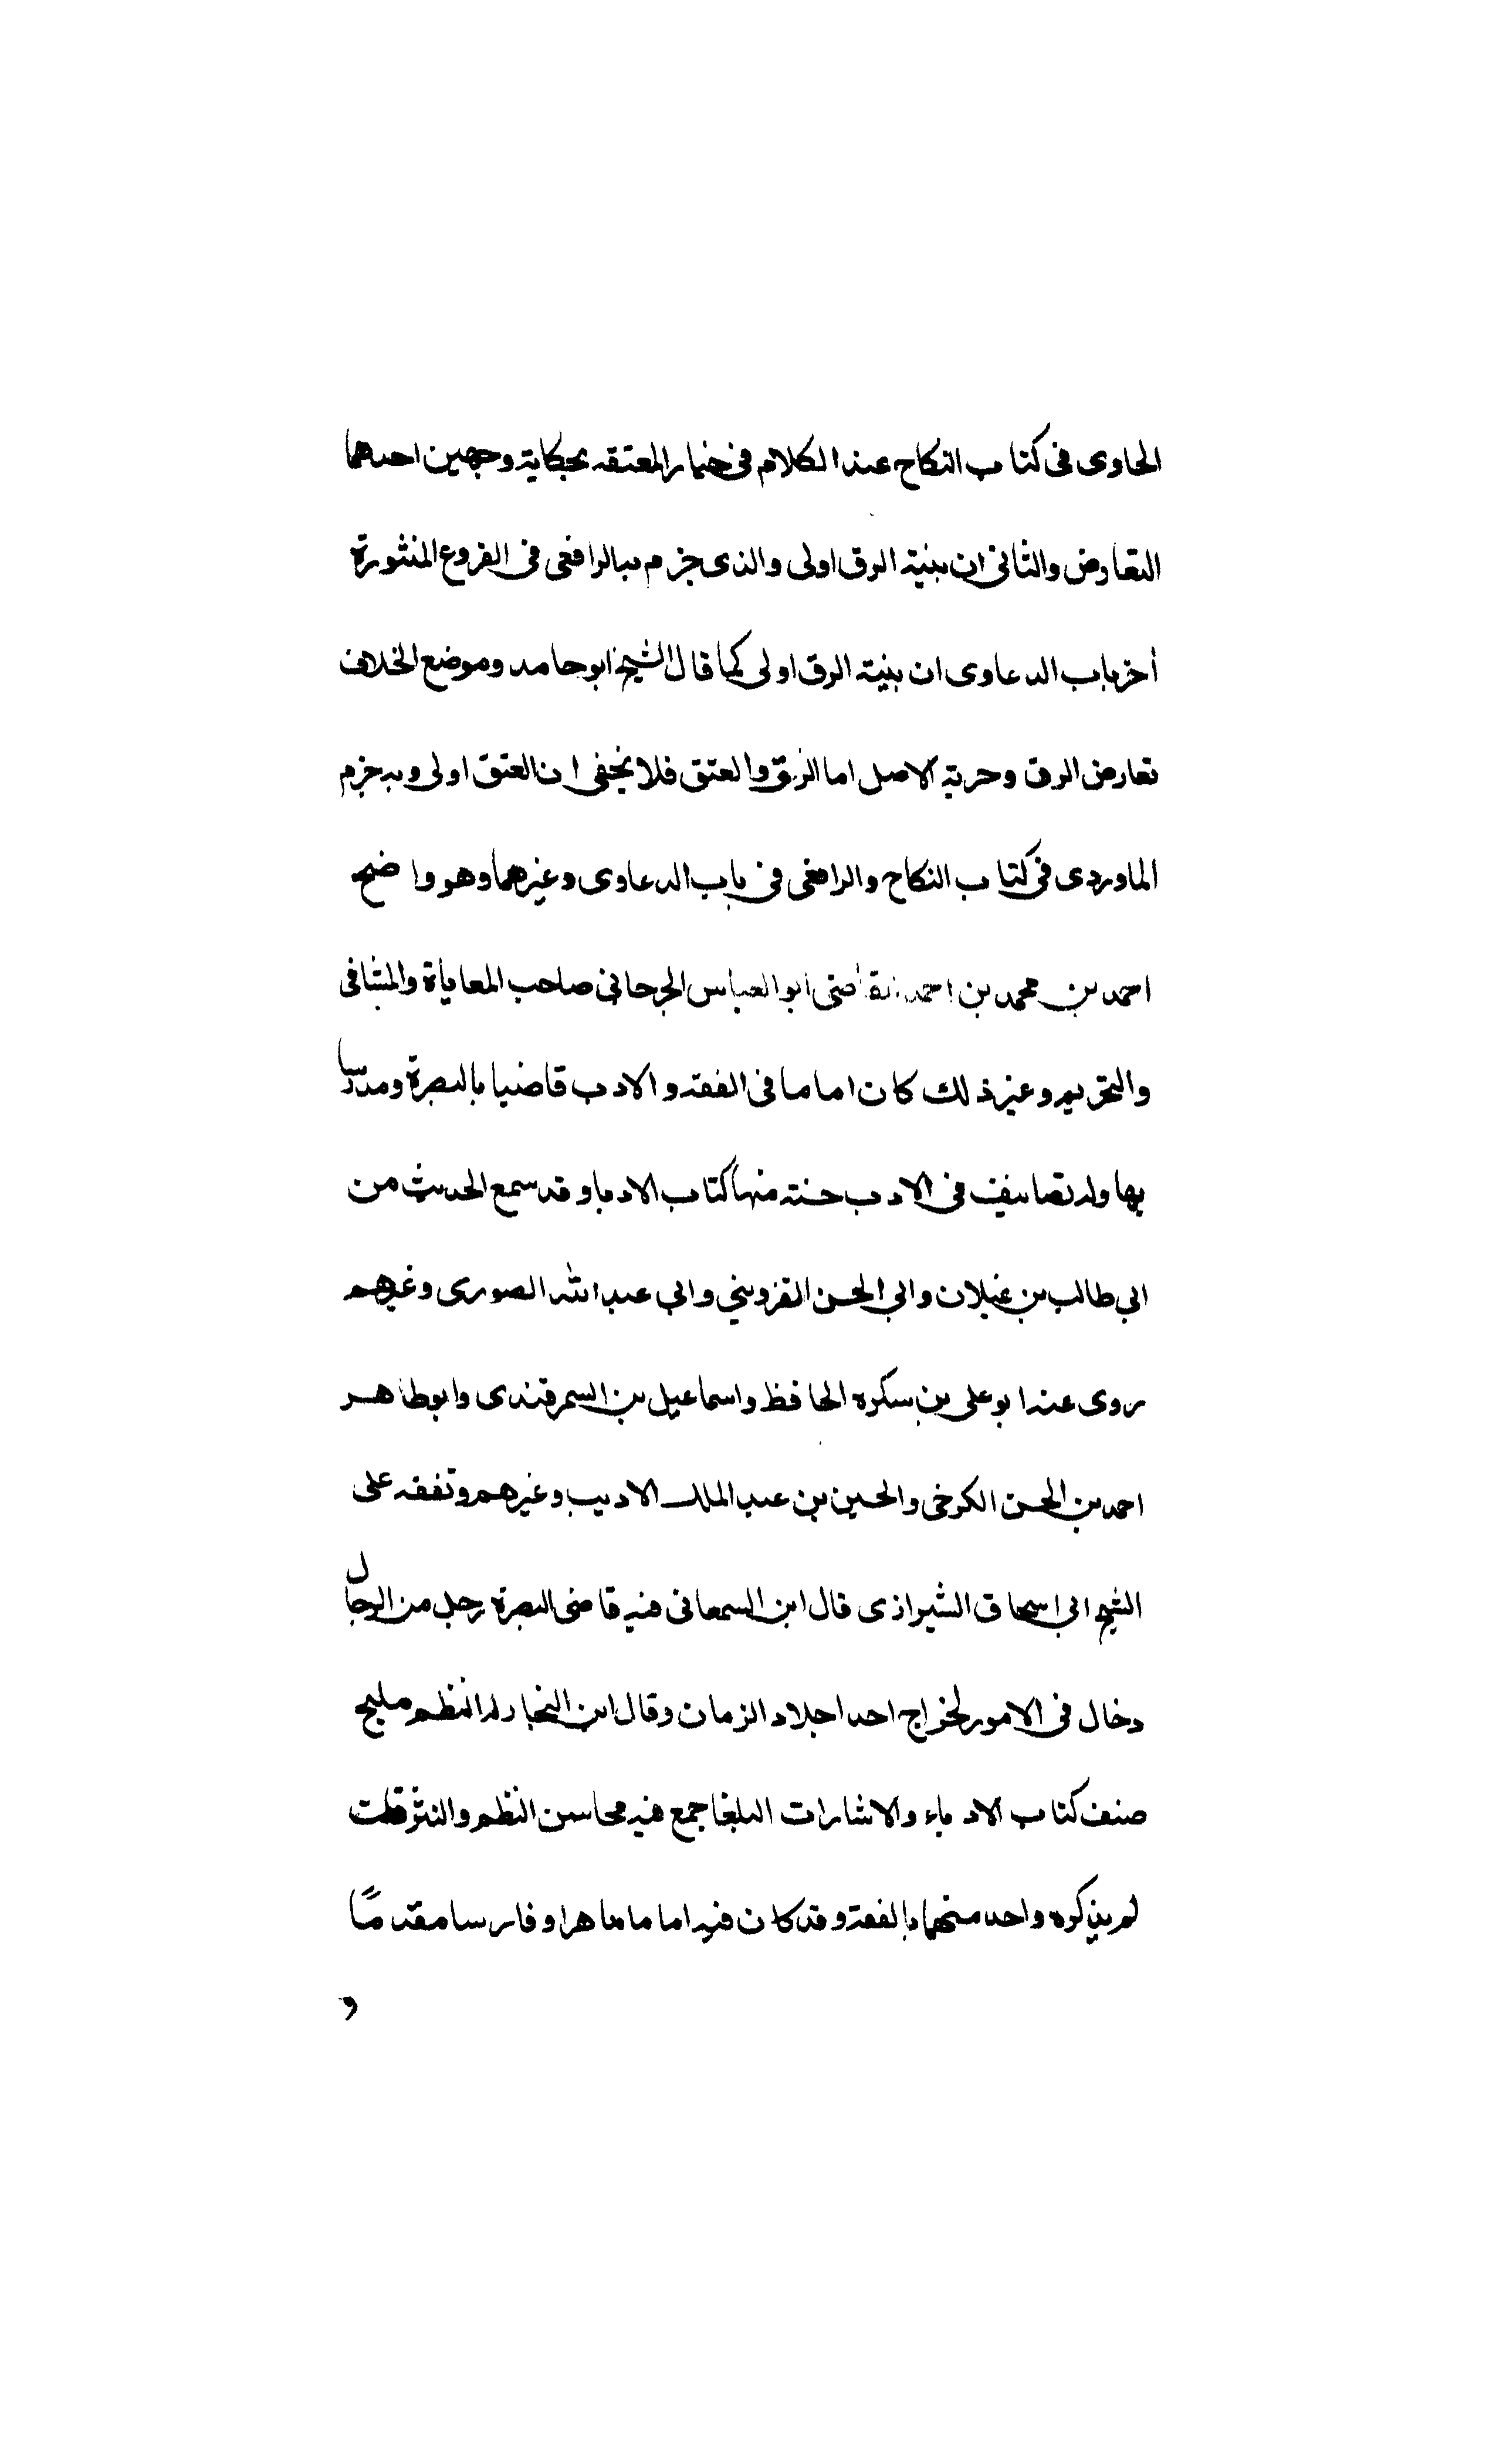 الحاوى فى كتاب النكاح عند الكلام فى خيار المعتقه بحكاية وجهين احدهما
التعارض والثانى ان بينة الرق اولى والذى جزم به الرافعى فى الفروع المنثورة
أخر باب الدعاوى ان بينة الرق اولى كما قال الشيخ ابو حامد وموضع الخلاف
تعارض الرق وحرية الاصل اما الرق والعتق فلا يخفى ان العتق اولى وبه جزم
الماوردى فى كتاب النكاح والرافعى فى باب الدعاوى وغيرهما وهو واضح
احمد بن محمد بن احمد القاضى ابو العباس الجرجانى صاحب المعاياة والشافى
والتحرير وغير ذلك كان اماما فى الفقه والادب قاضيا بالبصرة ومدرسا
بها وله تصانيف فى الادب حسنة منها كتاب الادبا وقد سمع الحديث من
ابى طالب بن غيلان وابى الحسن القزوينى وابى عبد الله الصورى وغيرهم
روى عنه ابو على بن سكره الحافظ واسماعيل بن السمرقندى وابو طاهر
احمد بن الحسن الكرخى والحسين بن عبد الملك الاديب وغيرهم وتفقه على
الشيخ ابى اسحاق الشيرازى قال ابن السمعانى فيه قاضى البصرة رجل من الرجال
دخال فى الامور لخراج احد اجلاد الزمان وقال ابن النجار له النظم مليح
صنف كتاب الادباء والاشارات البلغا جمع فيه محاسن النظم والنثر قلت
لم يذكره واحد منهما بالفقه وقد كان فيه اماما ماهرا وفارسا مقدمًا
و